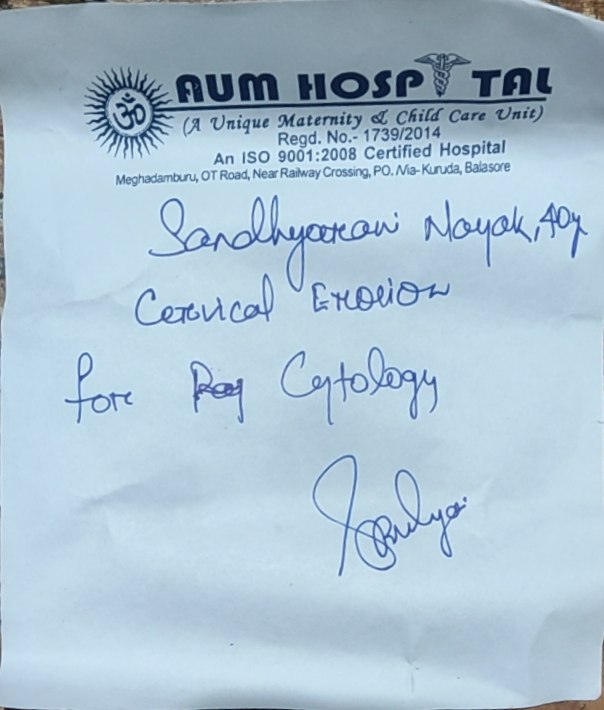 ॐ
AUM HOSPITAL
(A Unique Maternity & Child Care Unit)
Regd. No.- 1739/2014
An ISO 9001:2008 Certified Hospital
Meghadamburu, OT Road, Near Railway Crossing, PO./Via- Kuruda, Balasore
Sandhyarani Nayak, 40y
Cervical Erosion
for Cytology